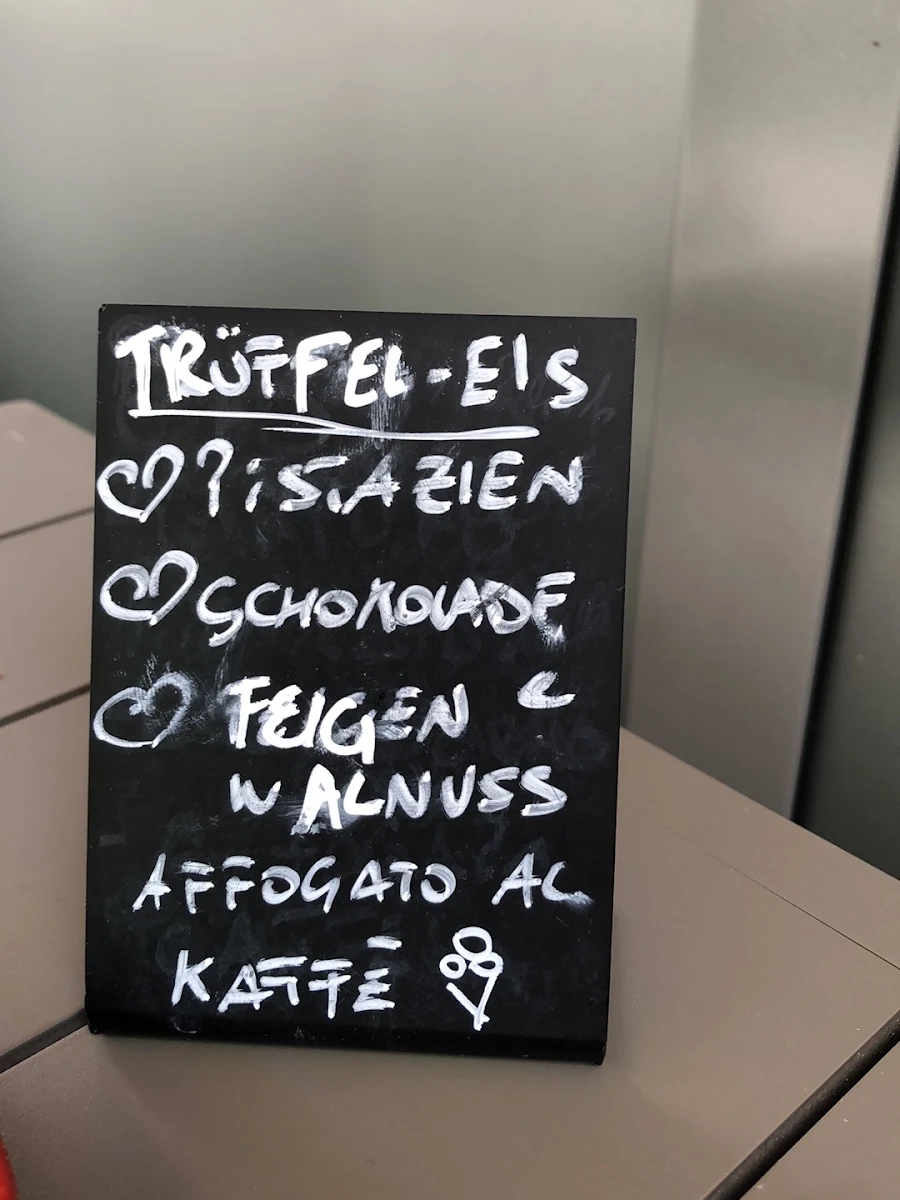 TRÜFFEL-EIS
PISTAZIEN
SCHOKOLADE
FEIGEN &
WALNUSS
AFFOGATO AL
KAFFÈ